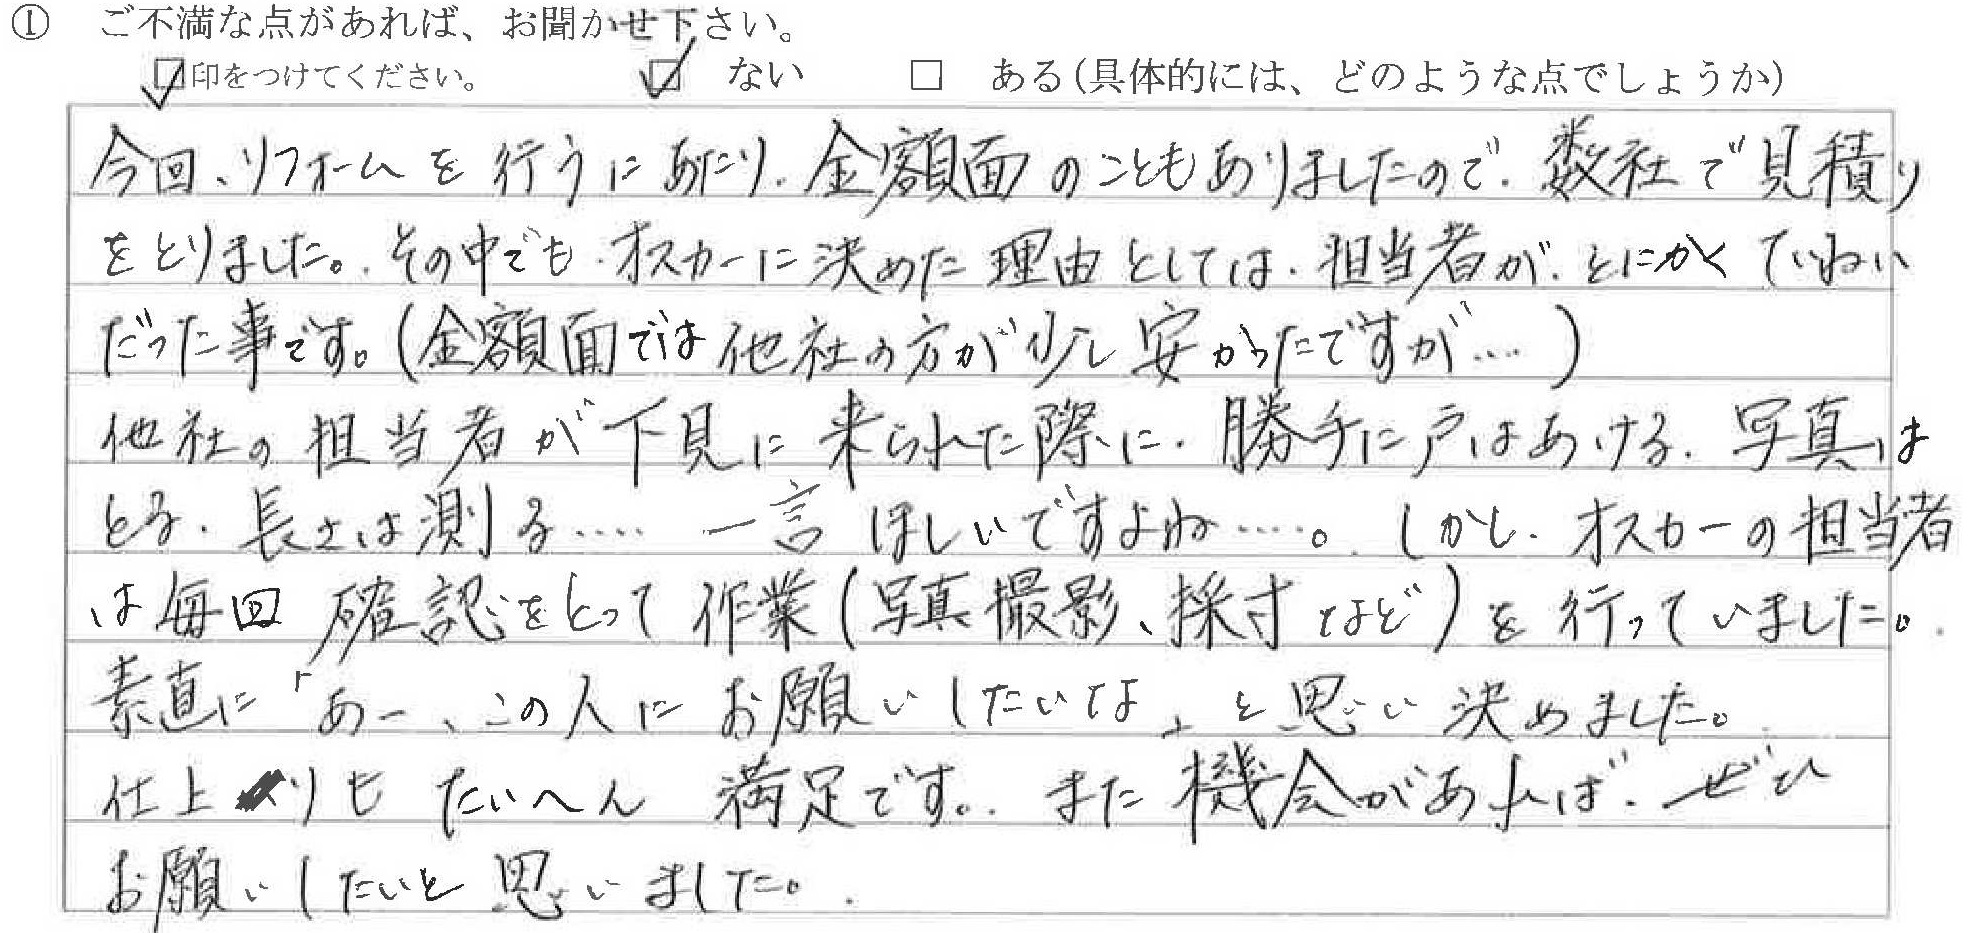 ① ご不満な点があれば、お聞かせ下さい。
☑印をつけてください。 ☑ ない □ ある(具体的には、どのような点でしょうか)
今回、リフォームを行うにあたり、金額面のこともありましたので、数社で見積り
をとりました。その中でも、オスカーに決めた理由としては、担当者が、とにかくていねい
だった事です。(金額面では他社の方が少し安かったですが…)
他社の担当者が下見に来られた際に、勝手に戸はあける、写真は
とる、長さは測る…… 一言ほしいですよね……。しかし、オスカーの担当者
は毎回確認をとって作業(写真撮影、採寸など)を行っていました。
素直に「あー、この人にお願いしたいな」と思い決めました。
仕上りもたいへん満足です。また機会があれば、ぜひ
お願いしたいと思いました。